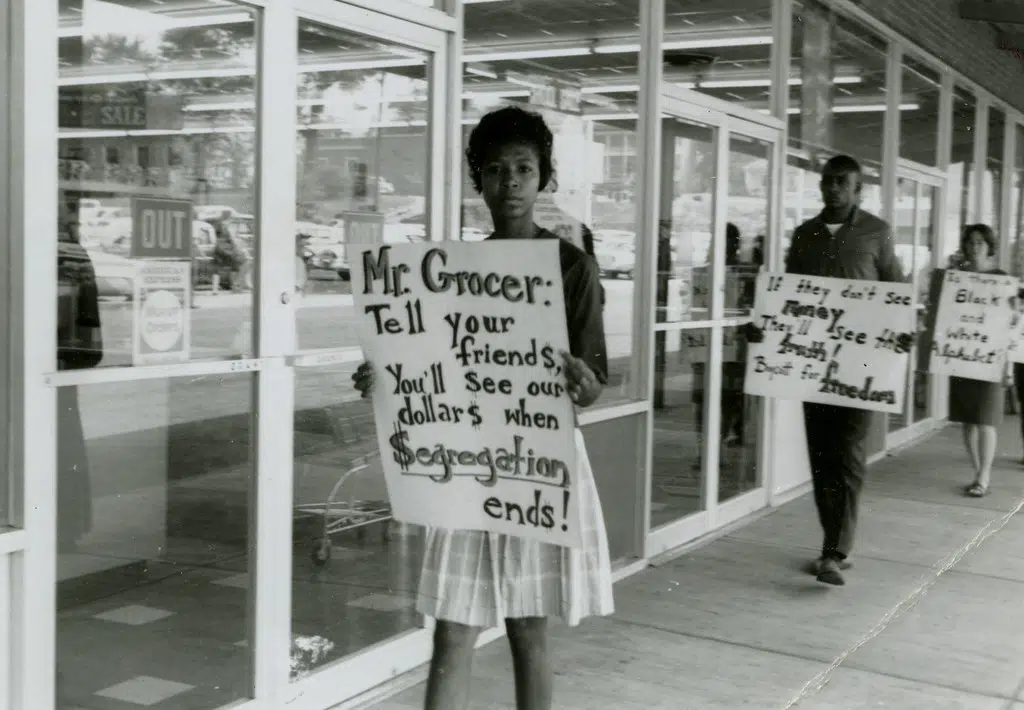 SALE
OUT
OUT
Mr. Grocer:
Tell your
friends,
You'll see our
dollar$ when
$egregation
ends!
If they don't see
money
They'll see the
truth!
Boycott for freedom
Is there a
Black
and
White
Alphabet